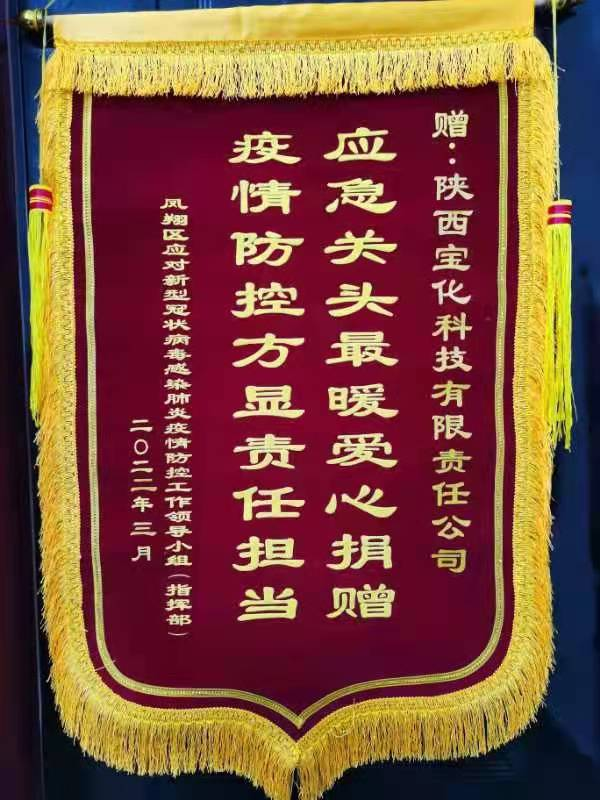 赠：陕西宝化科技有限责任公司
应急关头最暖爱心捐赠
疫情防控方显责任担当
凤翔区应对新型冠状病毒感染肺炎疫情防控工作领导小组（指挥部）
二〇二二年三月